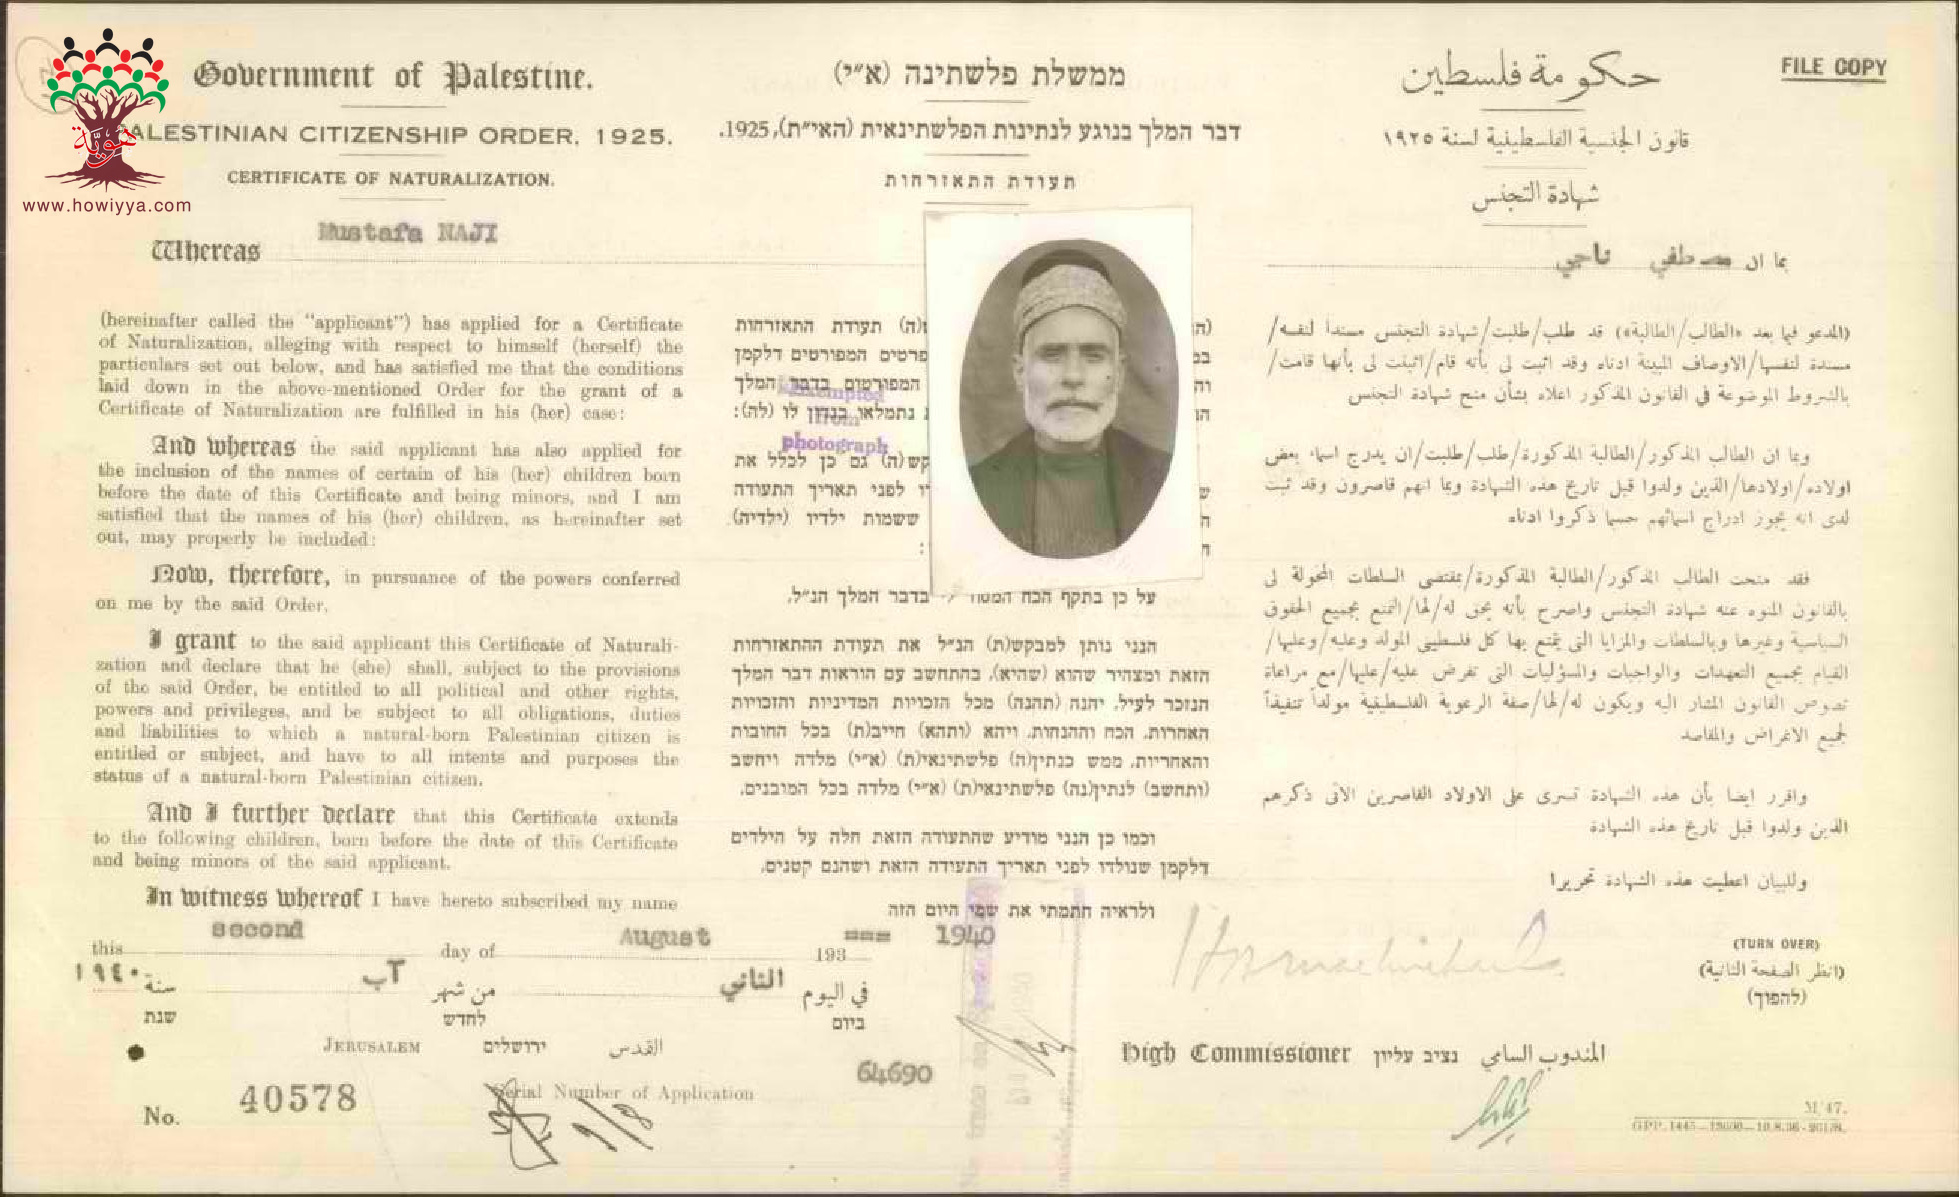 FILE COPY
هوية
www.howiyya.com
Government of Palestine.
PALESTINIAN CITIZENSHIP ORDER, 1925.
CERTIFICATE OF NATURALIZATION.
Whereas Mustafa NAJI
(hereinafter called the "applicant") has applied for a Certificate
of Naturalization, alleging with respect to himself (herself) the
particulars set out below, and has satisfied me that the conditions
laid down in the above-mentioned Order for the grant of a
Certificate of Naturalization are fulfilled in his (her) case:
And whereas the said applicant has also applied for
the inclusion of the names of certain of his (her) children born
before the date of this Certificate and being minors, and I am
satisfied that the names of his (her) children, as hereinafter set
out, may properly be included:
Now, therefore, in pursuance of the powers conferred
on me by the said Order,
I grant to the said applicant this Certificate of Naturali-
zation and declare that he (she) shall, subject to the provisions
of the said Order, be entitled to all political and other rights,
powers and privileges, and be subject to all obligations, duties
and liabilities to which a natural-born Palestinian citizen is
entitled or subject, and have to all intents and purposes the
status of a natural-born Palestinian citizen.
And I further declare that this Certificate extends
to the following children, born before the date of this Certificate
and being minors of the said applicant.
In witness whereof I have hereto subscribed my name
this second day of August 193 === 1940
ממשלת פלשתינה (א״י)
דבר המלך בנוגע לנתינות הפלשתינאית (הא״ית), 1925.
תעודת התאזרחות
תעודת התאזרחות
פרטים המפורטים דלקמן
המפורטים בדבר המלך
נתמלאו בנדון לו (לה):
גם כן לכלל את
לפני תאריך התעודה
ששמות ילדיו (ילדיה)
photograph
על כן בתקף הכח בדבר המלך הנ״ל,
הנני נותן למבקש(ת) הנ״ל את תעודת ההתאזרחות
הזאת ומצהיר שהוא (שהיא), בהתחשב עם הוראות דבר המלך
הנזכר לעיל, יהנה (תהנה) מכל הזכויות המדיניות והזכויות
האחרות, הכח וההנחות, ויהא (ותהא) חייב(ת) בכל החובות
והאחריות, ממש כנתין(ה) פלשתינאי(ת) (א״י) מלדה ויחשב
(ותחשב) לנתין(נה) פלשתינאי(ת) (א״י) מלדה בכל המובנים.
וכמו כן הנני מודיע שהתעודה הזאת חלה על הילדים
דלקמן שנולדו לפני תאריך התעודה הזאת ושהנם קטנים.
ולראיה חתמתי את שמי היום הזה
حكومة فلسطين
قانون الجنسية الفلسطينية لسنة ١٩٢٥
شهادة التجنس
بما ان مصطفي ناجي
(المدعو فيما بعد «الطالب/الطالبة») قد طلب/طلبت/شهادة التجنس مسنداً لنفسه/
مسندة لنفسها/الاوصاف المبينة ادناه وقد اثبت لى بأنه قام/اثبتت لى بأنها قامت/
بالشروط الموضوعة في القانون المذكور اعلاه بشأن منح شهادة التجنس
وبما ان الطالب المذكور/الطالبة المذكورة/طلب/طلبت/ان يدرج اسماء بعض
اولاده/اولادها/الذين ولدوا قبل تاريخ هذه الشهادة وبما انهم قاصرون وقد ثبت
لدى انه يجوز ادراج اسمائهم حسبما ذكروا ادناه
فقد منحت الطالب المذكور/الطالبة المذكورة/بمقتضى السلطات المخولة لى
بالقانون المنوه عنه شهادة التجنس واصرح بأنه يحق له/لها/التمتع بجميع الحقوق
السياسية وغيرها وبالسلطات والمزايا التى يتمتع بها كل فلسطينى المولد وعليه/وعليها/
القيام بجميع التعهدات والواجبات والمسؤليات التى تفرض عليه/عليها/مع مراعاة
نصوص القانون المشار اليه ويكون له/لها/صفة الرعوية الفلسطينية مولداً تنفيذاً
لجميع الاغراض والمقاصد
واقرر ايضا بأن هذه الشهادة تسرى على الاولاد القاصرين الاتى ذكرهم
الذين ولدوا قبل تاريخ هذه الشهادة
وللبيان اعطيت هذه الشهادة تحريرا
في اليوم الثاني من شهر آب سنة ١٩٤٠
ביום לחדש שנת
JERUSALEM ירושלים القدس
(TURN OVER)
(انظر الصفحة الثانية)
(להפוך)
High Commissioner נציב עליון المندوب السامي
No. 40578
Serial Number of Application 64690
M/47.